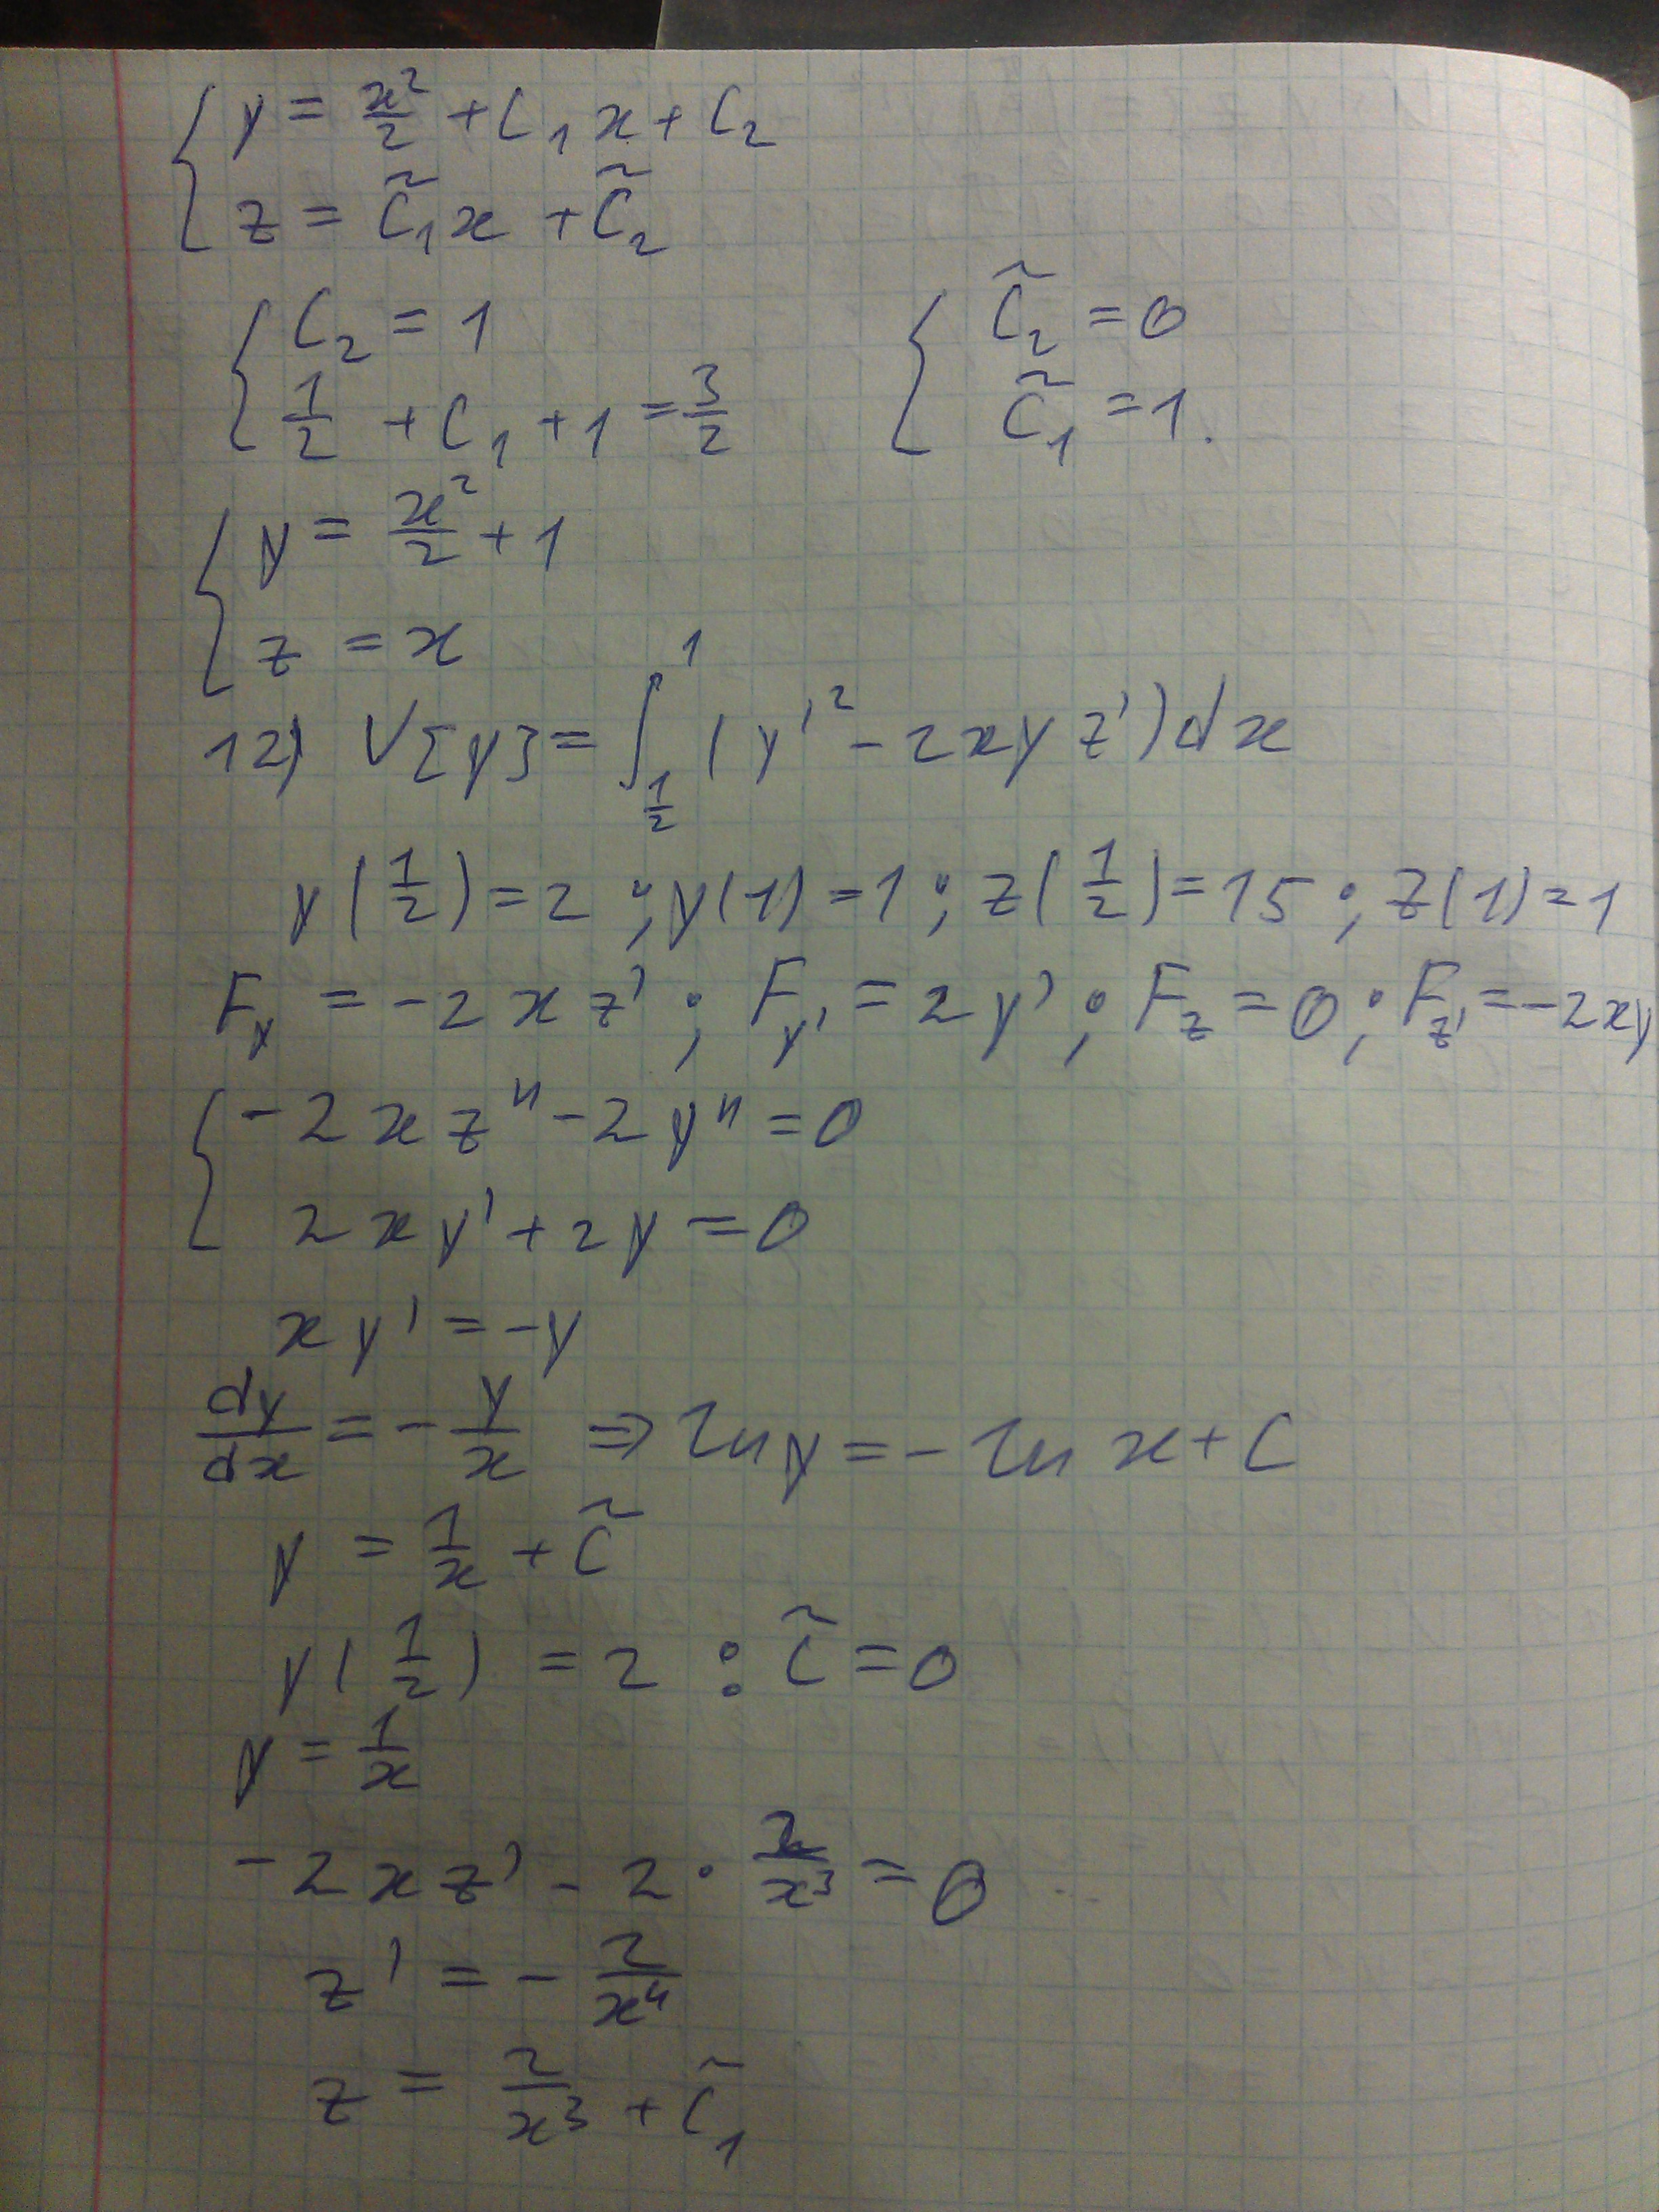 { y = x²/2 + C₁x + C₂
z = C̃₁x + C̃₂
{ C₂ = 1 { C̃₂ = 0
1/2 + C₁ + 1 = 3/2 C̃₁ = 1.
{ y = x²/2 + 1
z = x
12) V[y] = ∫_{1/2}^{1} (y'² - 2xyz')dx
y(1/2) = 2 ; y(1) = 1 ; z(1/2) = 15 ; z(1) = 1
F_y = -2xz' ; F_y' = 2y' ; F_z = 0 ; F_z' = -2xy
{ -2xz" - 2y" = 0
2xy' + 2y = 0
xy' = -y
dy/dx = - y/x ⇒ ln y = - ln x + C
y = 1/x + C̃
y(1/2) = 2 : C̃ = 0
y = 1/x
-2xz' - 2 · 2/x³ = 0
z' = - 2/x⁴
z = 2/x³ + C̃₁